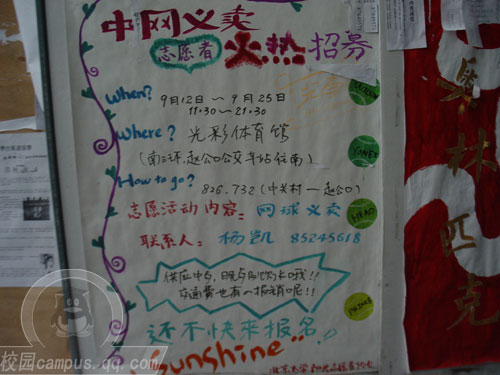 中网义卖
志愿者 火热招募
When?
9月12日～9月25日
11:30～21:30
Where? 光彩体育馆
(南三环.赵公口公交车站往南)
How to go?
826.732(中关村—赵公口)
志愿活动内容: 网球义卖
联系人: 杨凯 85245618
供应中午,晚
交通费也有一报销呢!!
还不快来报名!
Sunshine
奥林匹克
校园campus.qq.com